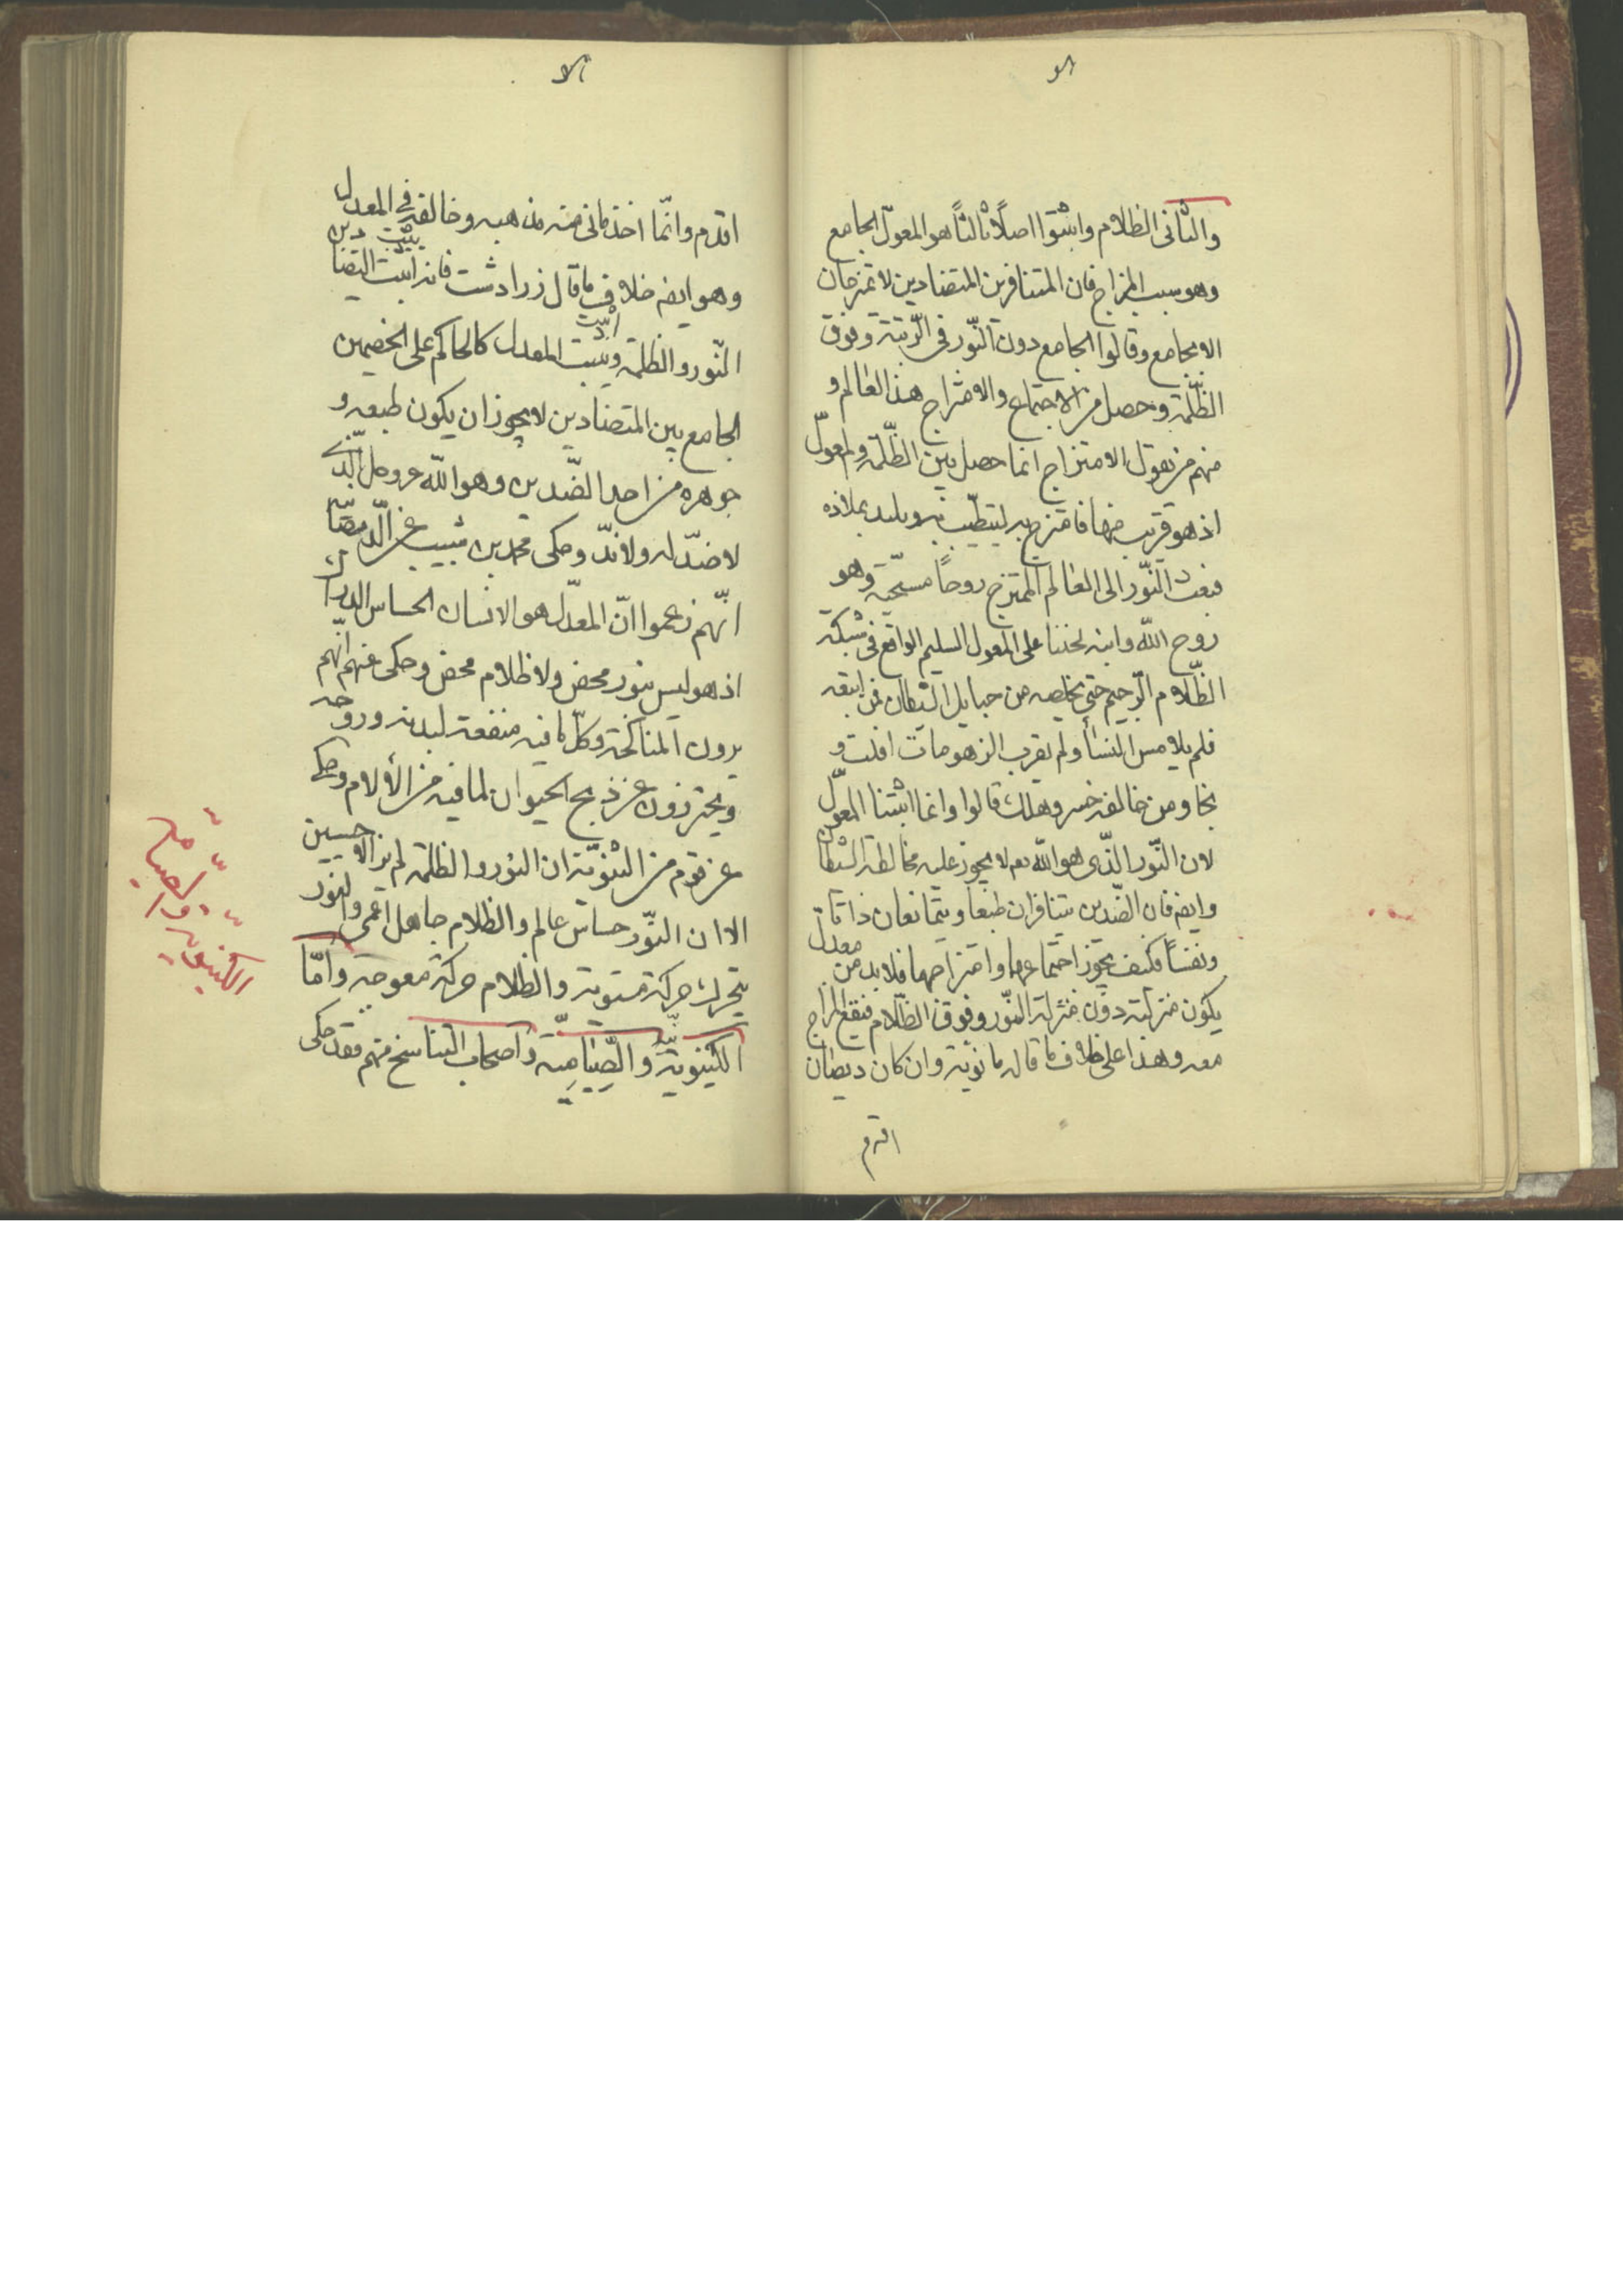 والثانى الظلام واثبتوا اصلًا ثالثًا هو المعوّل الجامع
وهو سبب المزاج فان المتنافرين المتضادين لا تمتزجان
الا بجامع وقالوا الجامع دون النّور فى الرّتبة وفوق
الظّلمة وحصل من الاجتماع والامتزاج هذا العالم و
منهم من يقول الامتزاج انما حصل بين الظّلمة والمعوّل
اذ هو قريب منها فامتزج به ليتطيّب به ويلتذ بملاذه
فبعث النّور الى العالم الممتزج روحًا مسيحيّة وهو
روح اللّه وابنه تحننا على المعول السليم الواقع فى شبكة
الظّلام الرّجيم حتى يخلصه من حبايل الشيطان فمن اتبعه
فلم يلامس النساء ولم يقرب الزهومات افلت و
نجا ومن خالفه خسر وهلك قالوا وانما اثبتنا المعوّل
لان النّور الذّى هو اللّه تعم لا يجوز عليه مخالطة الشيطان
وايضه فان الضّدين يتنافران طبعًا ويتمانعان ذاتًا
ونفسًا فكيف يجوز اجتماعهما وامتزاجهما فلابد من معدل
يكون منزلته دون منزلة النّور وفوق الظّلام فيقع المزاج
معه وهذا على خلاف ما قاله مانوية وان كان ديصان
اقدم
اقدم وانّما اخذ مانى منه مذهبه وخالفه فى المعدل
وهو ايضه خلاف ما قال زرادشت فانه اثبت التضاد بين
النّور والظلمة ويثبت المعدل كالحاكم على الخصمين
الجامع بين المتضادين لا يجوز ان يكون طبعه و
جوهره من احد الضّدين وهو اللّه عز وجل الّذى
لا ضدّ له ولا ندّ وحكى محمد بن شبيب عن الدّيصانية
انّهم زعموا انّ المعدّل هو الانسان الحساس الدراك
اذ هو ليس بنور محض ولا ظلام محض وحكى عنهم انّهم
يرون المناكحة وكلّ ما فيه منفعة لبدنه وروحه
ويحترزون عن ذبح الحيوان لما فيه من الألام وحكى
عن قوم من الثنويّة ان النور والظلمة لم يزالا حسيين
الا ان النّور حساس عالم والظلام جاهل اعمى والنور
يتحرك حركة مستوية والظلام حركة معوجة وامّا
الكينويّة والصّياميّة واصحاب التناسخ منهم فقد حكى
الكينويه والصياميه